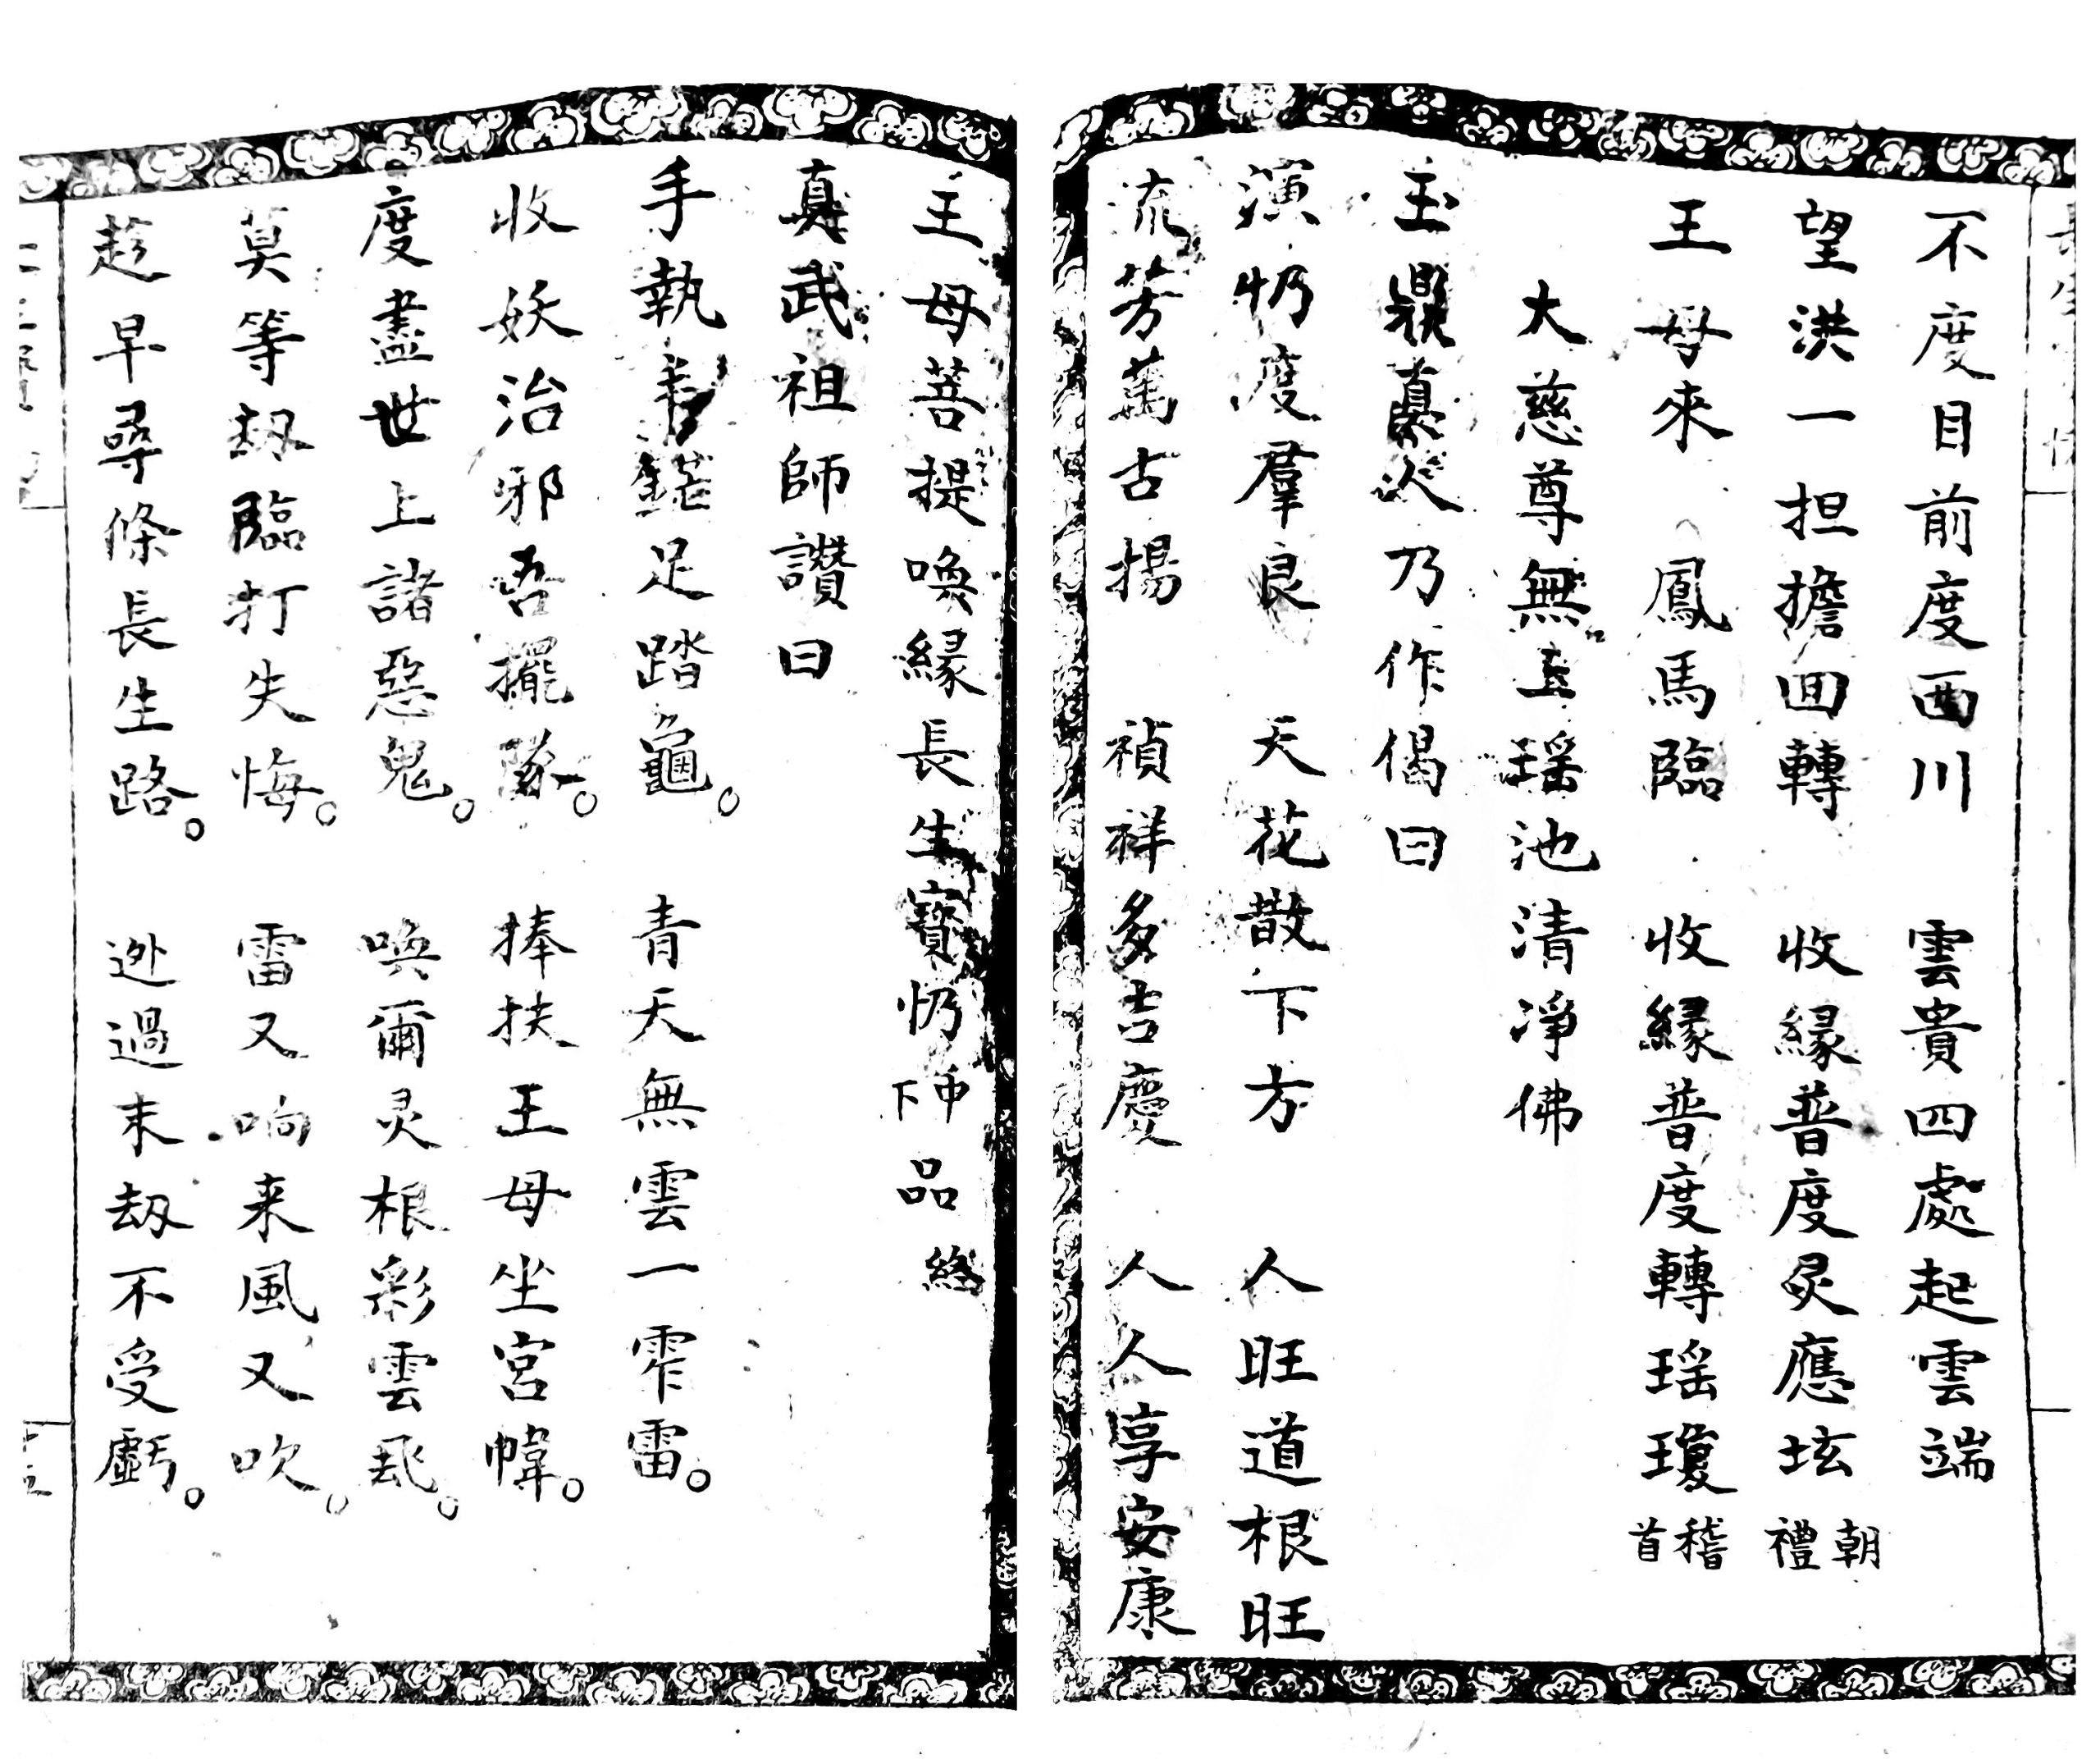 不度目前度西川　雲貴四處起雲端
望洪一担擔回轉　收緣普度灵應坛 朝禮
王母來　鳳馬臨　收緣普度轉瑶瓊 稽首
大慈尊無上瑶池清凈佛
玉鼎真人乃作偈曰
演忉度羣良　天花散下方　人旺道根旺
流芳萬古揚　禎祥多吉慶　人人享安康
王母菩提喚緣長生寶忉 下 品終
真武祖師讚曰
手執 足踏龜。　青天無雲一霅雷。
收妖治邪吾擺隊。　捧扶王母坐宮幃。
度盡世上諸惡鬼。　喚爾灵根彩雲飛。
莫等刼臨打失悔。　雷又响来風又吹。
趁早尋條長生路。　逃過末刼不受虧。